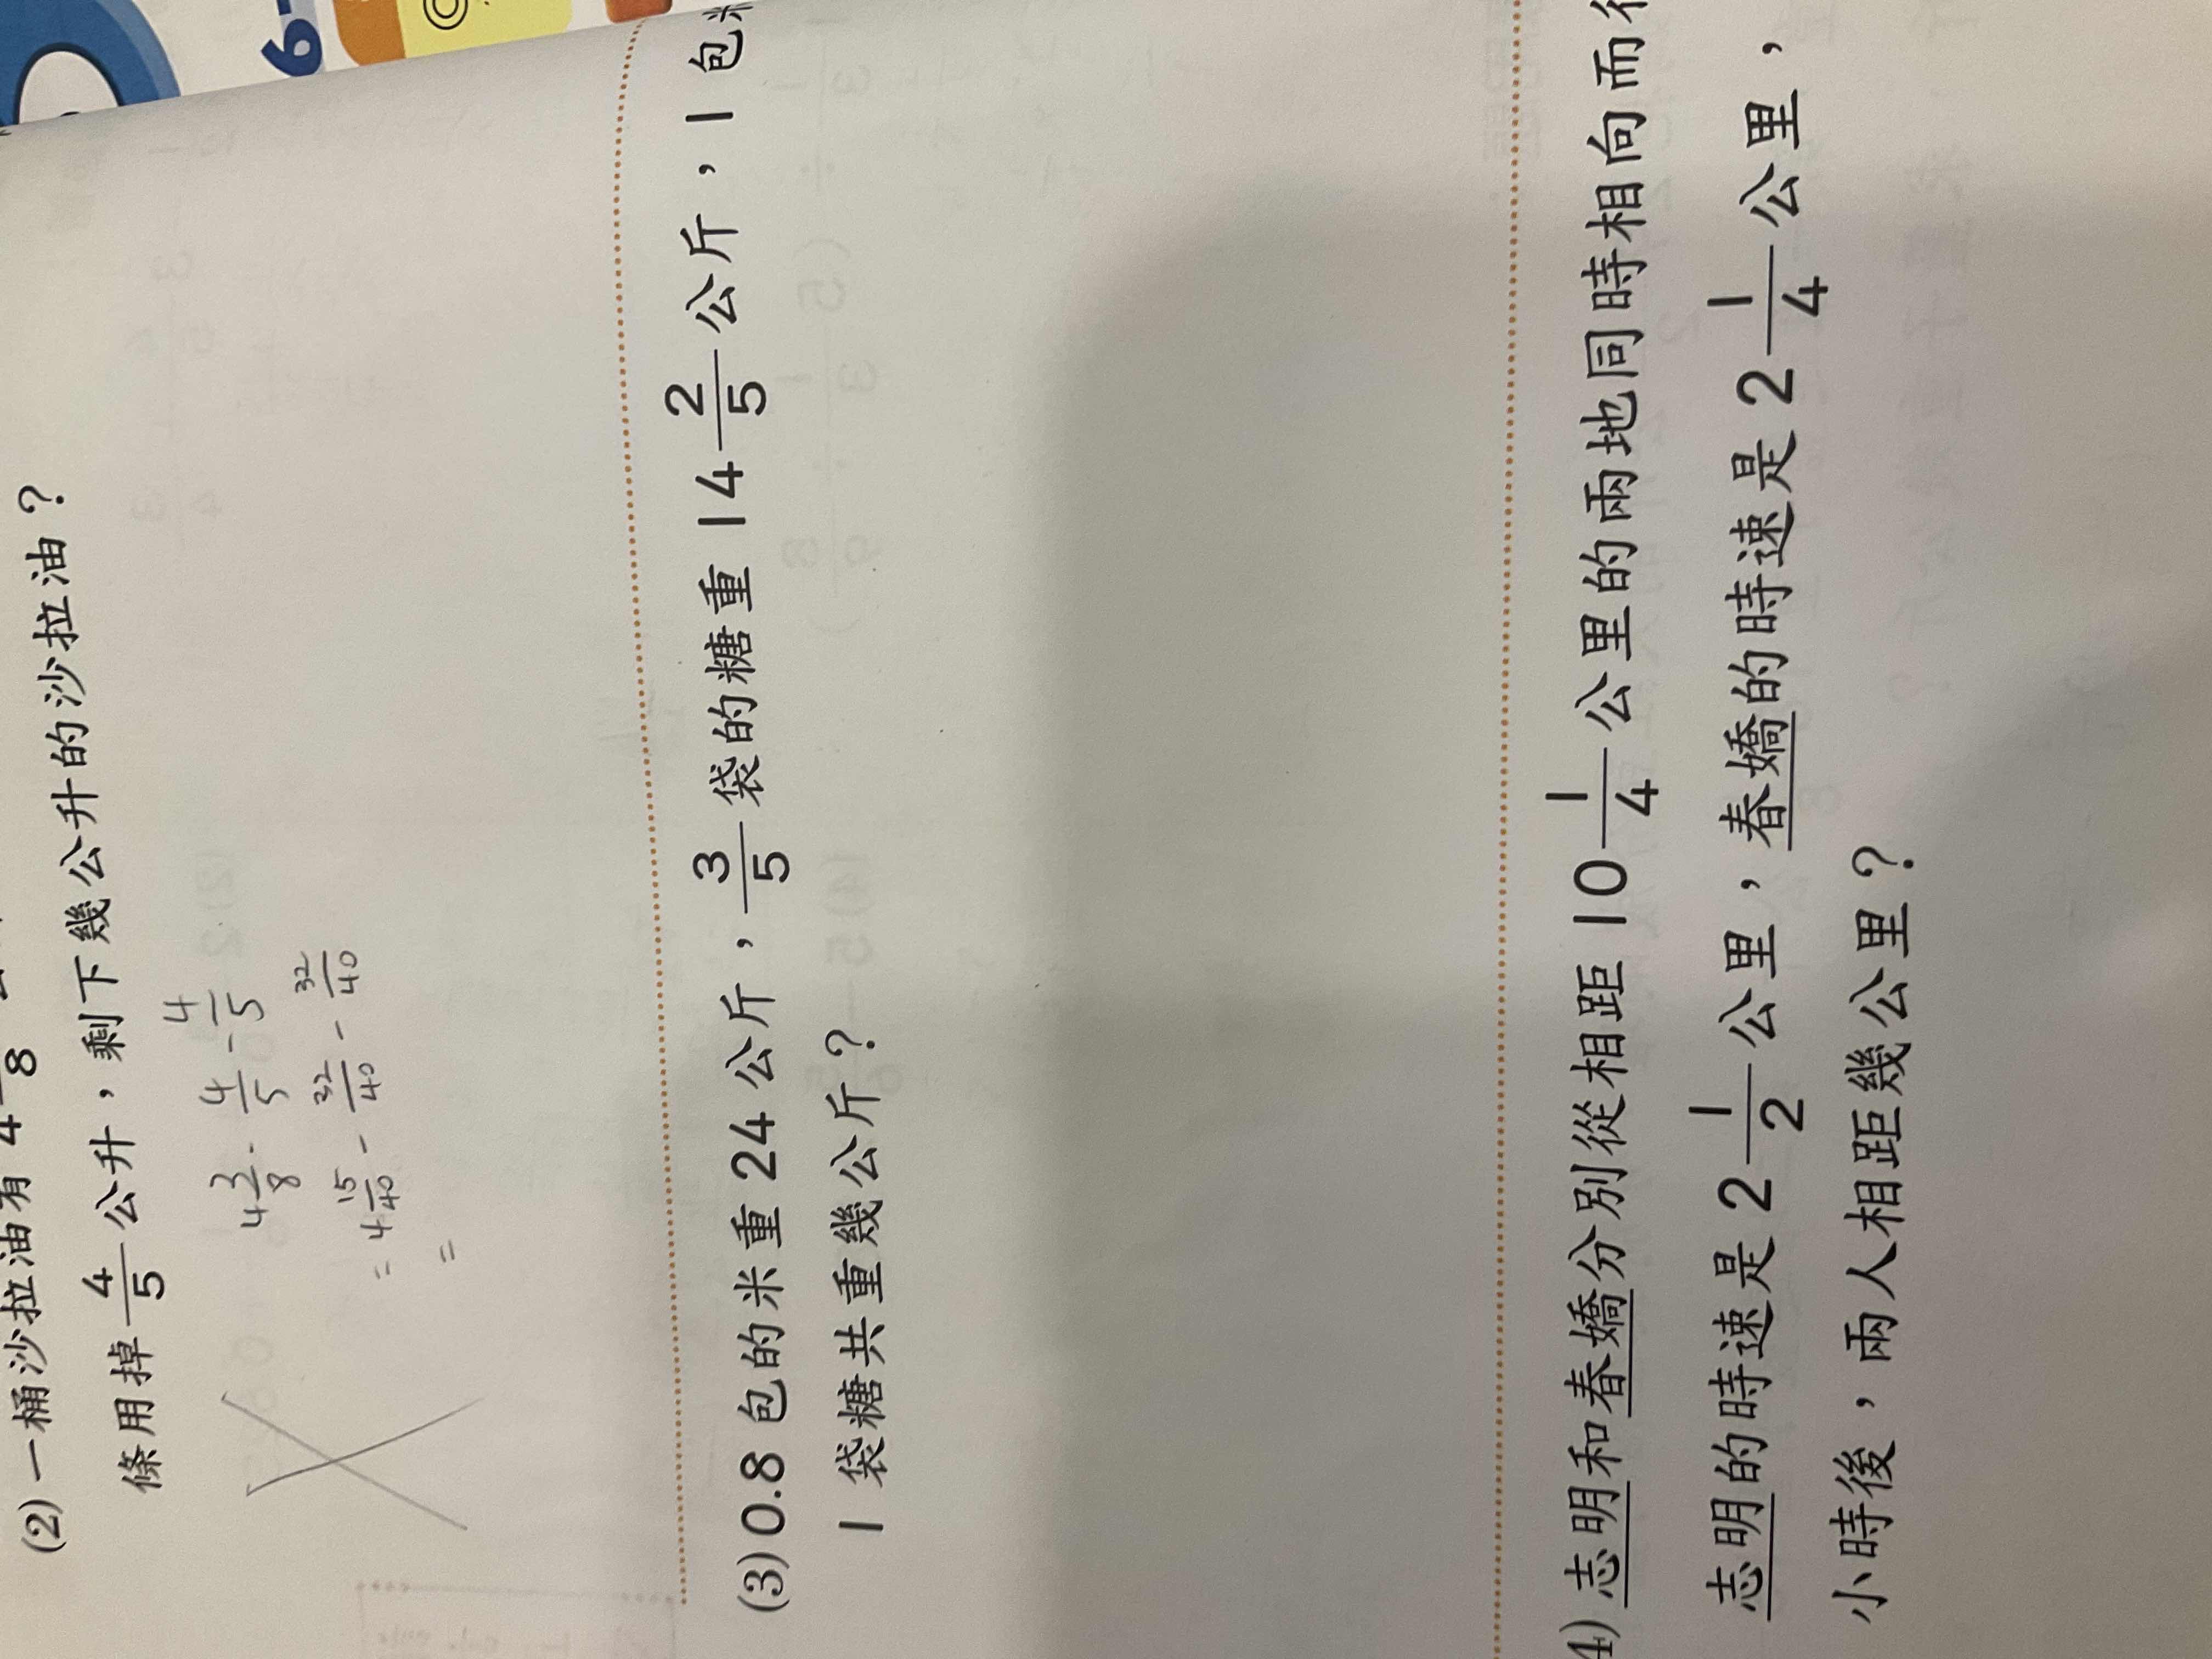 6-
(2) 一桶沙拉油有 4 /8
條用掉 4/5 公升，剩下幾公升的沙拉油？
4 3/8 - 4/5 - 4/5
= 4 15/40 - 32/40 - 32/40
=
(3) 0.8 包的米重 24 公斤，3/5 袋的糖重 14 2/5 公斤，1 包
1 袋糖共重幾公斤？
4) 志明和春嬌分別從相距 10 1/4 公里的兩地同時相向而
志明的時速是 2 1/2 公里，春嬌的時速是 2 1/4 公里，
小時後，兩人相距幾公里？